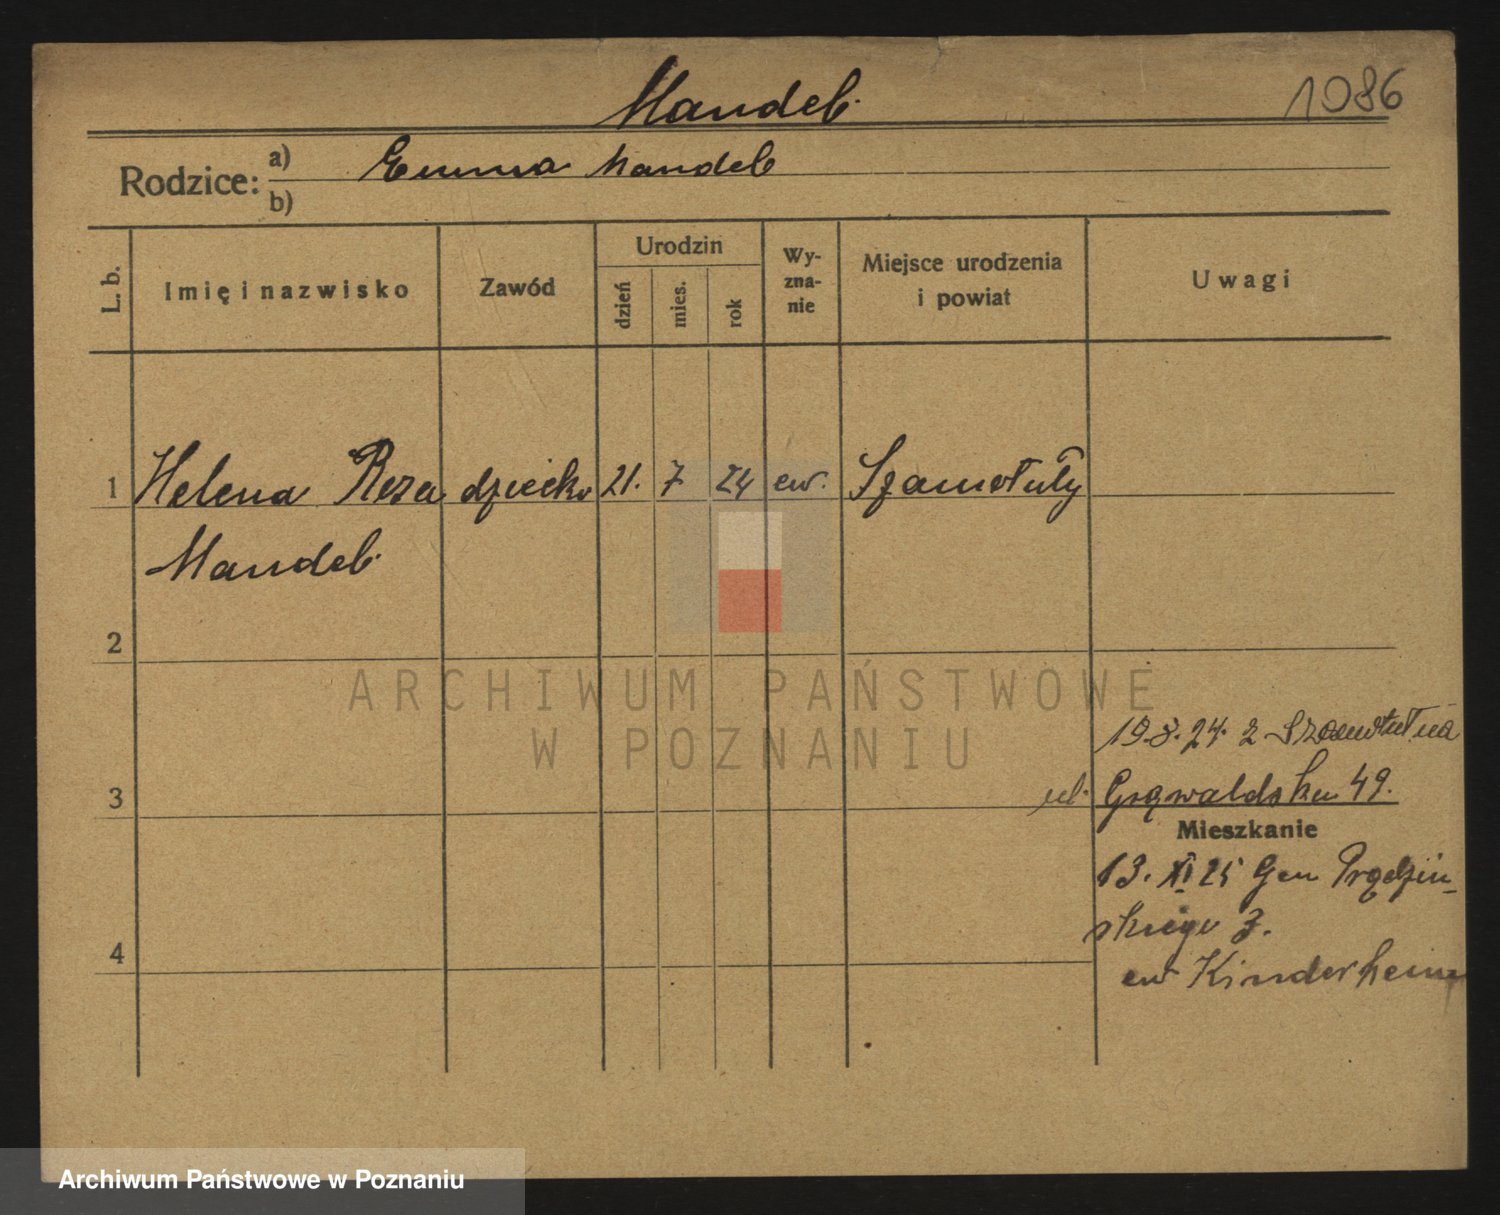 Mandel.
1086
Rodzice: a) Emma Mandel
b)
L. b. Imię i nazwisko Zawód Urodzin dzień mies. rok Wyznanie Miejsce urodzenia i powiat Uwagi
1 Helena Roza dziecko 21. 7 24 ew. Szamotuły
Mandel.
2
ARCHIWUM PAŃSTWOWE
W POZNANIU
19.8.24. z Szamotuł na
3 ul. Grąwaldska 49.
Mieszkanie
13. XI 25 Gen Prądzin-
skiego 3.
4
ew Kinderheim
Archiwum Państwowe w Poznaniu